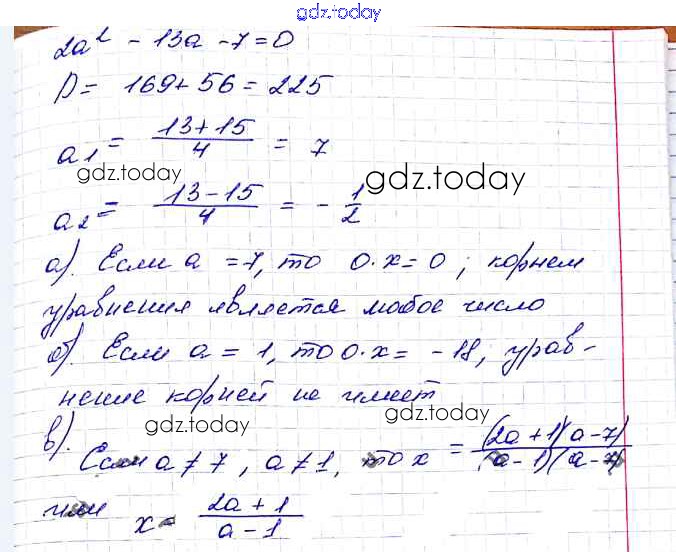 gdz.today
2a² - 13a - 7 = 0
D = 169 + 56 = 225
a1 = (13+15)/4 = 7
gdz.today
gdz.today
a2 = (13-15)/4 = -1/2
а). Если a = 7, то 0·x = 0 ; корнем
уравнения является любое число
б). Если a = 1, то 0·x = -18, урав-
нение корней не имеет
gdz.today
gdz.today
в).
Если a ≠ 7, a ≠ 1, то x = (2a+1)(a-7)/(a-1)(a-7)
или x = (2a+1)/(a-1)